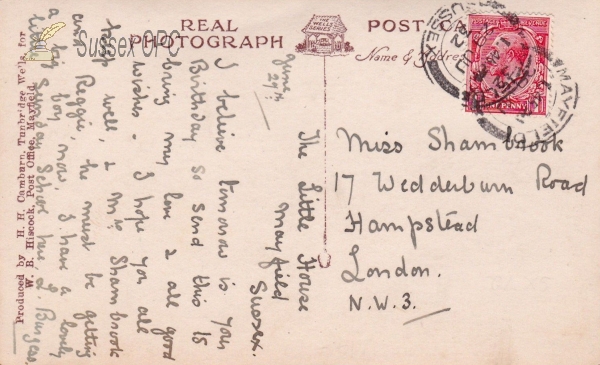 REAL PHOTOGRAPH
POST CARD
THE WELLS SERIES
Name & Address
SussexOPS
POSTAGE REVENUE
PENNY
MAYFIELD
SUSSEX
June
29th
The Little House
Mayfield
Sussex.
I believe tomorrow is your
Birthday so send this to
bring my love & all good
wishes. I hope you all
keep well, & Mrs Shambrook
and Reggie, he must be getting
a big boy, now. I have a lovely
little Sunday School here, L. Burgess
Miss Shambrook
17 Wedderburn Road
Hampstead
London.
N.W.3.
Produced by H. H. Camburn, Tunbridge Wells, for
W. B. Hiscock, Post Office, Mayfield.